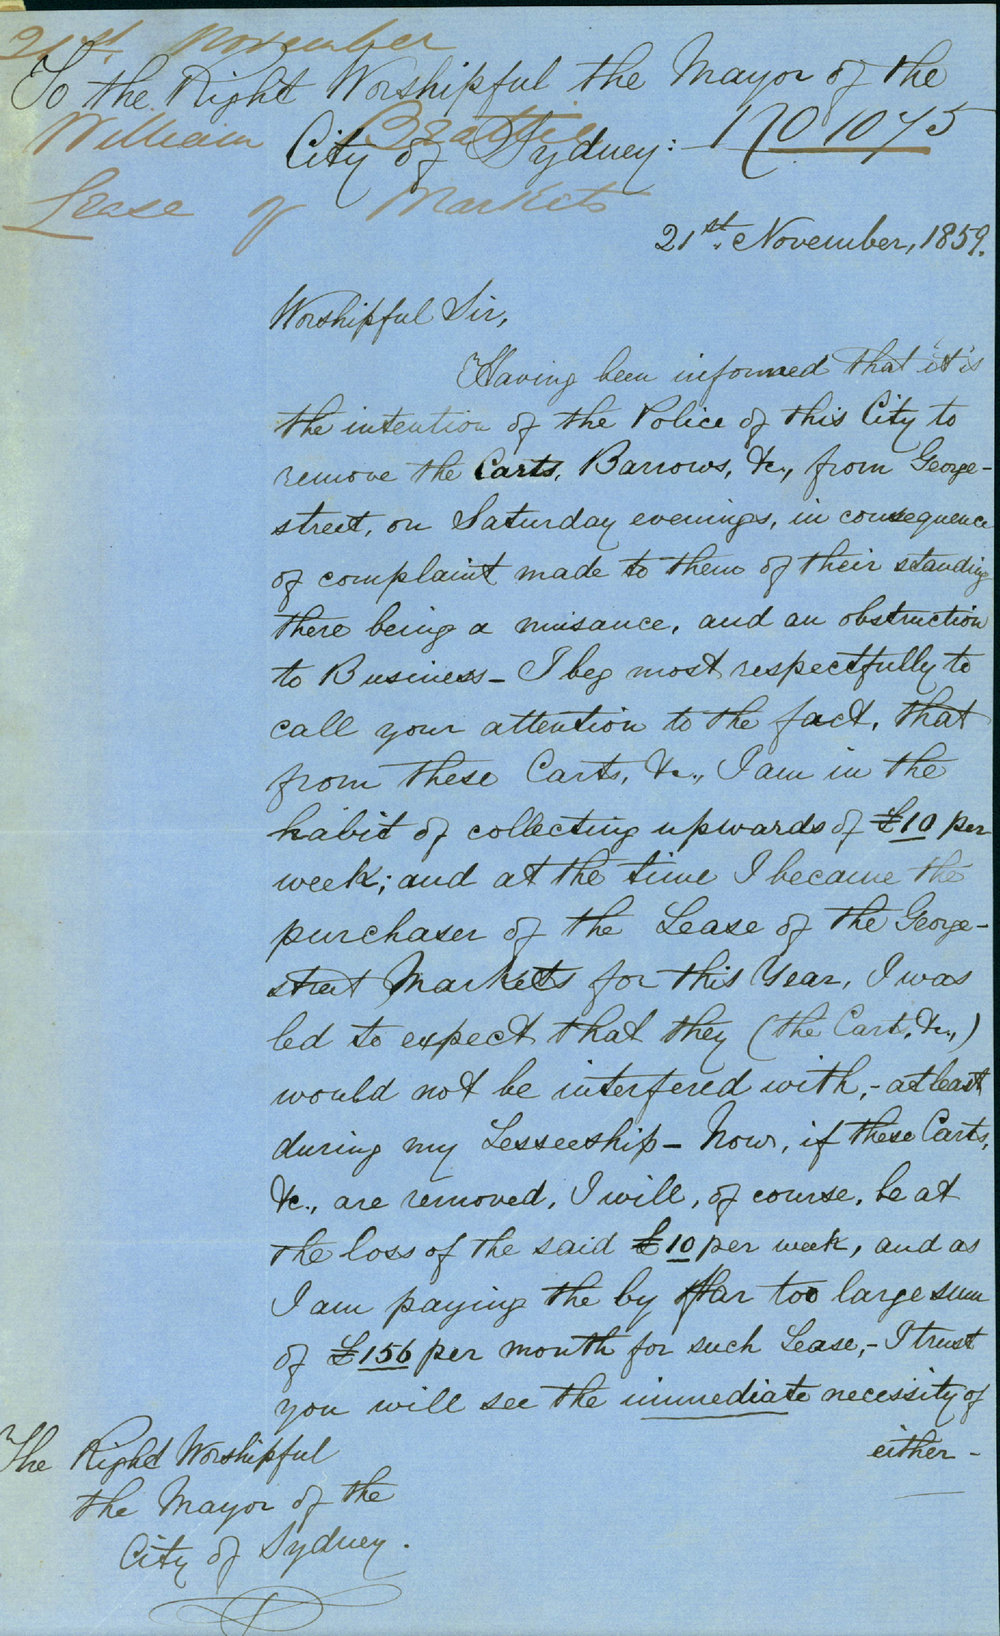 21st. November
To the Right Worshipful the Mayor of the
William Beattie
City of Sydney:- No 1075
Lease of Markets
21st. November, 1859.
Worshipful Sir,
Having been informed that it is
the intention of the Police of this City to
remove the Carts, Barrows, &c., from George-
street, on Saturday evenings, in consequence
of complaint made to them of their standing
there being a nuisance, and an obstruction
to Business - I beg most respectfully to
call your attention to the fact, that
from these Carts, &c., I am in the
habit of collecting upwards of £10 per
week; and at the time I became the
purchaser of the Lease of the George-
street Markets for this Year, I was
led to expect that they (the Carts, &c.,)
would not be interfered with,- at least
during my Lesseeship - Now, if these Carts,
&c., are removed, I will, of course, be at
the loss of the said £10 per week, and as
I am paying the by far too large sum
of £156 per month for such Lease,- I trust
you will see the immediate necessity of
either -
The Right Worshipful
the Mayor of the
City of Sydney.